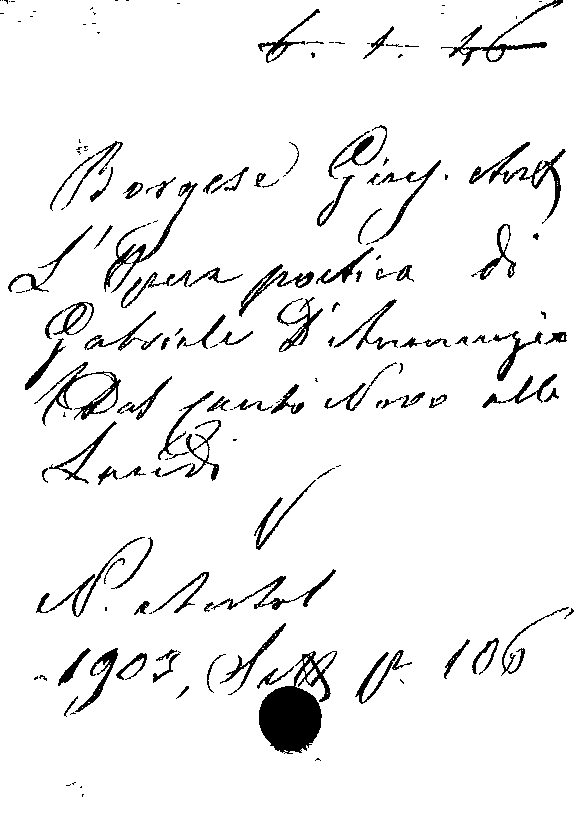 6. 1. 46
Borgese Gius. Ant
L'Opera poetica di
Gabriele D'Annunzio
(Dal Canto Novo alle
Laudi
V
N. Antol
1903, Sett p. 106